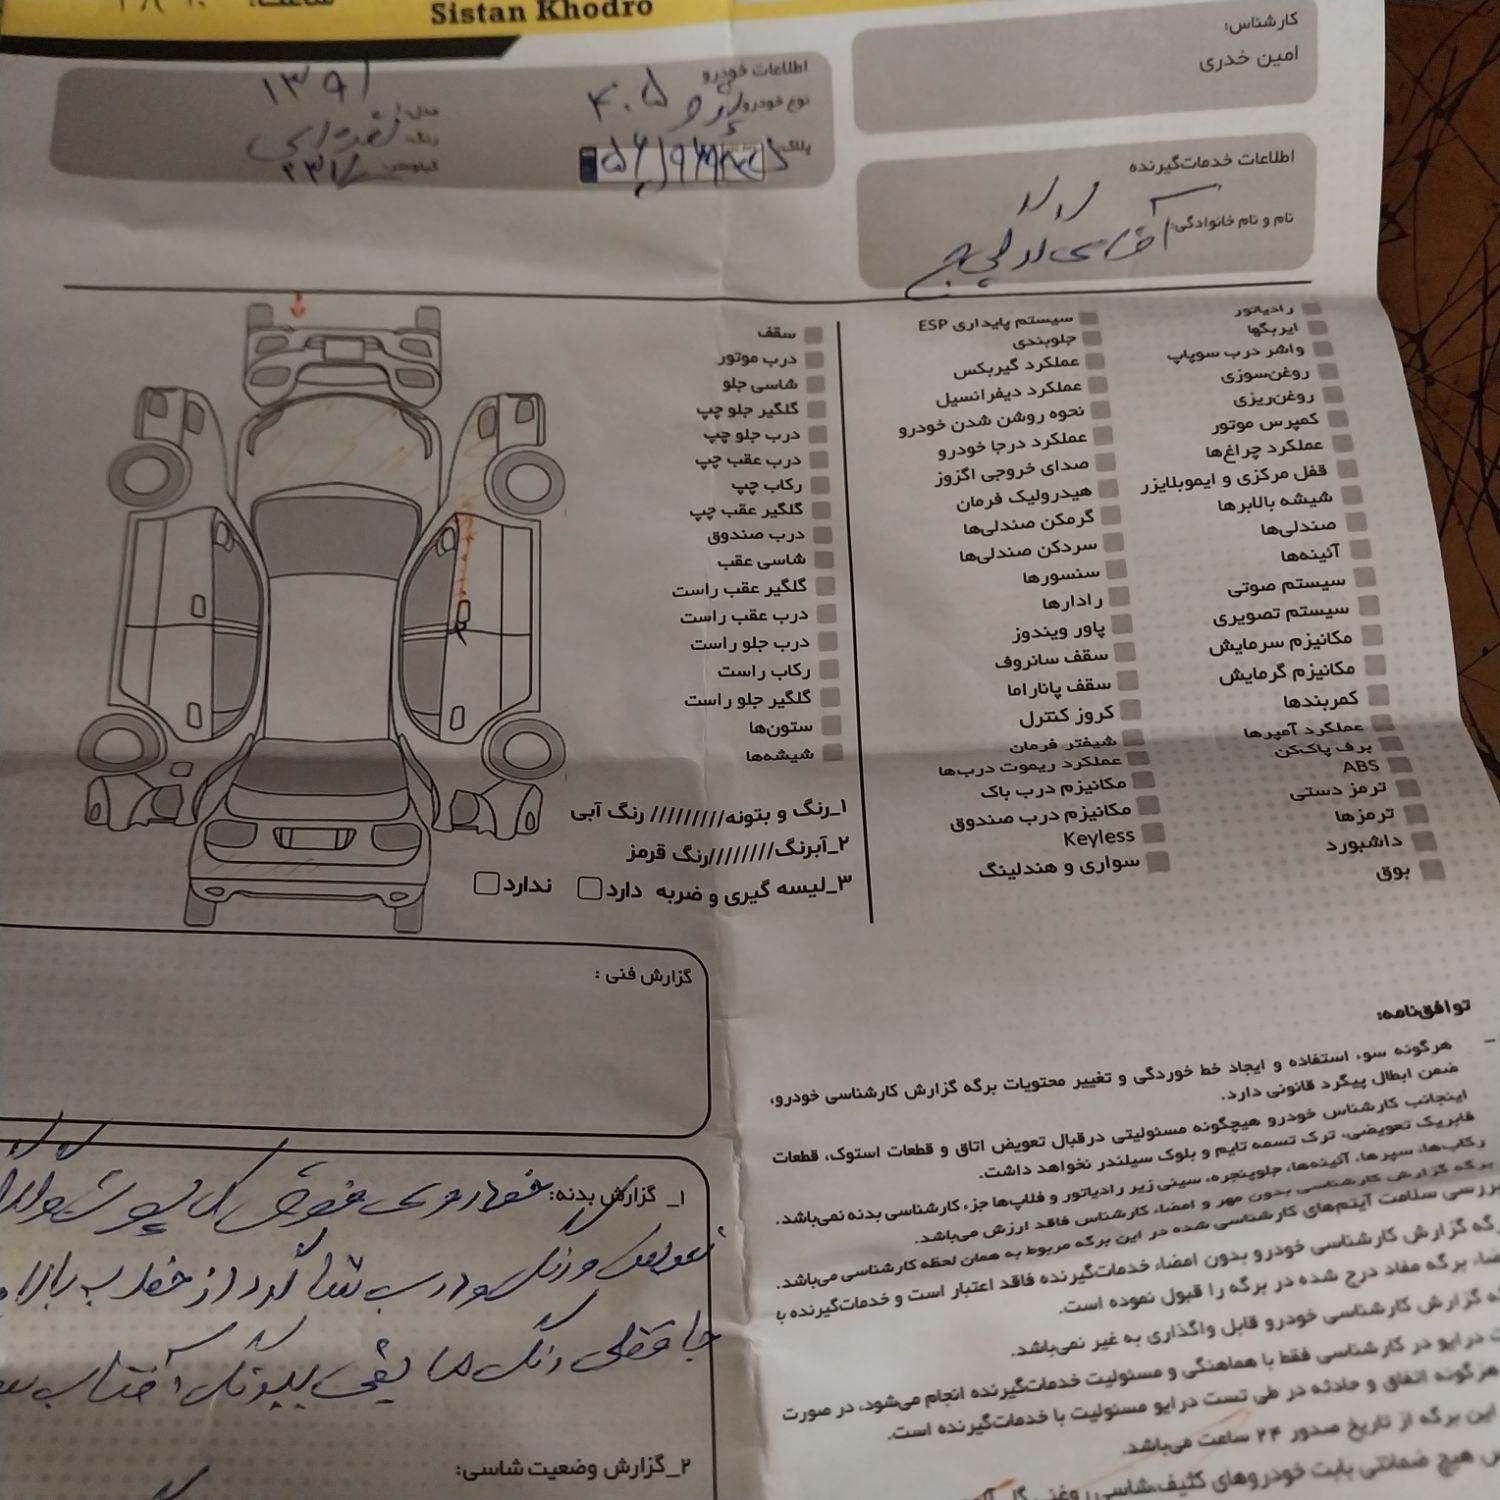 Sistan Khodro
ساعت:
کارشناس:
امین خدری
اطلاعات خودرو
نوع خودرو: پژو ۴۰۵
پلاک:
مدل: ۱۳۹۱
رنگ: نقره‌ای
کیلومتر:
اطلاعات خدمات‌گیرنده
نام و نام خانوادگی: آقای
رادیاتور
ایربگها
واشر درب سوپاپ
روغن‌سوزی
روغن‌ریزی
کمپرس موتور
عملکرد چراغ‌ها
قفل مرکزی و ایموبلایزر
شیشه بالابرها
صندلی‌ها
آئینه‌ها
سیستم صوتی
سیستم تصویری
مکانیزم سرمایش
مکانیزم گرمایش
کمربندها
عملکرد آمپرها
برف پاک‌کن
ABS
ترمز دستی
ترمزها
داشبورد
بوق
سیستم پایداری ESP
جلوبندی
عملکرد گیربکس
عملکرد دیفرانسیل
نحوه روشن شدن خودرو
عملکرد درجا خودرو
صدای خروجی اگزوز
هیدرولیک فرمان
گرمکن صندلی‌ها
سردکن صندلی‌ها
سنسورها
رادارها
پاور ویندوز
سقف سانروف
سقف پاناراما
کروز کنترل
شیفتر فرمان
عملکرد ریموت درب‌ها
مکانیزم درب باک
مکانیزم درب صندوق
Keyless
سواری و هندلینگ
سقف
درب موتور
شاسی جلو
گلگیر جلو چپ
درب جلو چپ
درب عقب چپ
رکاب چپ
گلگیر عقب چپ
درب صندوق
شاسی عقب
گلگیر عقب راست
درب عقب راست
درب جلو راست
رکاب راست
گلگیر جلو راست
ستون‌ها
شیشه‌ها
۱_رنگ و بتونه///////// رنگ آبی
۲_آبرنگ////////رنگ قرمز
۳_لیسه گیری و ضربه دارد ندارد
گزارش فنی :
توافق‌نامه:
هرگونه سوء استفاده و ایجاد خط خوردگی و تغییر محتویات برگه گزارش کارشناسی خودرو،
ضمن ابطال پیگرد قانونی دارد.
اینجانب کارشناس خودرو هیچگونه مسئولیتی درقبال تعویض اتاق و قطعات استوک، قطعات
فابریک تعویضی، ترک تسمه تایم و بلوک سیلندر نخواهد داشت.
رکاب‌ها، سپرها، آئینه‌ها، جلوپنجره، سینی زیر رادیاتور و فلاپ‌ها جزء کارشناسی بدنه نمی‌باشد.
برگه گزارش کارشناسی بدون مهر و امضاء کارشناس فاقد ارزش می‌باشد.
بررسی سلامت آیتم‌های کارشناسی شده در این برگه مربوط به همان لحظه کارشناسی می‌باشد.
برگه گزارش کارشناسی خودرو بدون امضاء خدمات‌گیرنده فاقد اعتبار است و خدمات‌گیرنده با
امضاء برگه مفاد درج شده در برگه را قبول نموده است.
گزارش کارشناسی خودرو قابل واگذاری به غیر نمی‌باشد.
درایو در کارشناسی فقط با هماهنگی و مسئولیت خدمات‌گیرنده انجام می‌شود، در صورت
هرگونه اتفاق و حادثه در طی تست درایو مسئولیت با خدمات‌گیرنده است.
این برگه از تاریخ صدور ۲۴ ساعت می‌باشد.
هیچ ضمانتی بابت خودروهای کثیف، شاسی روغنی،
۱_ گزارش بدنه: خودروی فوق گلگیر
تعویض و رنگ و درب شاگرد از خط به بالا
جا قفلی رنگ مابقی بیرنگ آفتاب
۲_گزارش وضعیت شاسی: